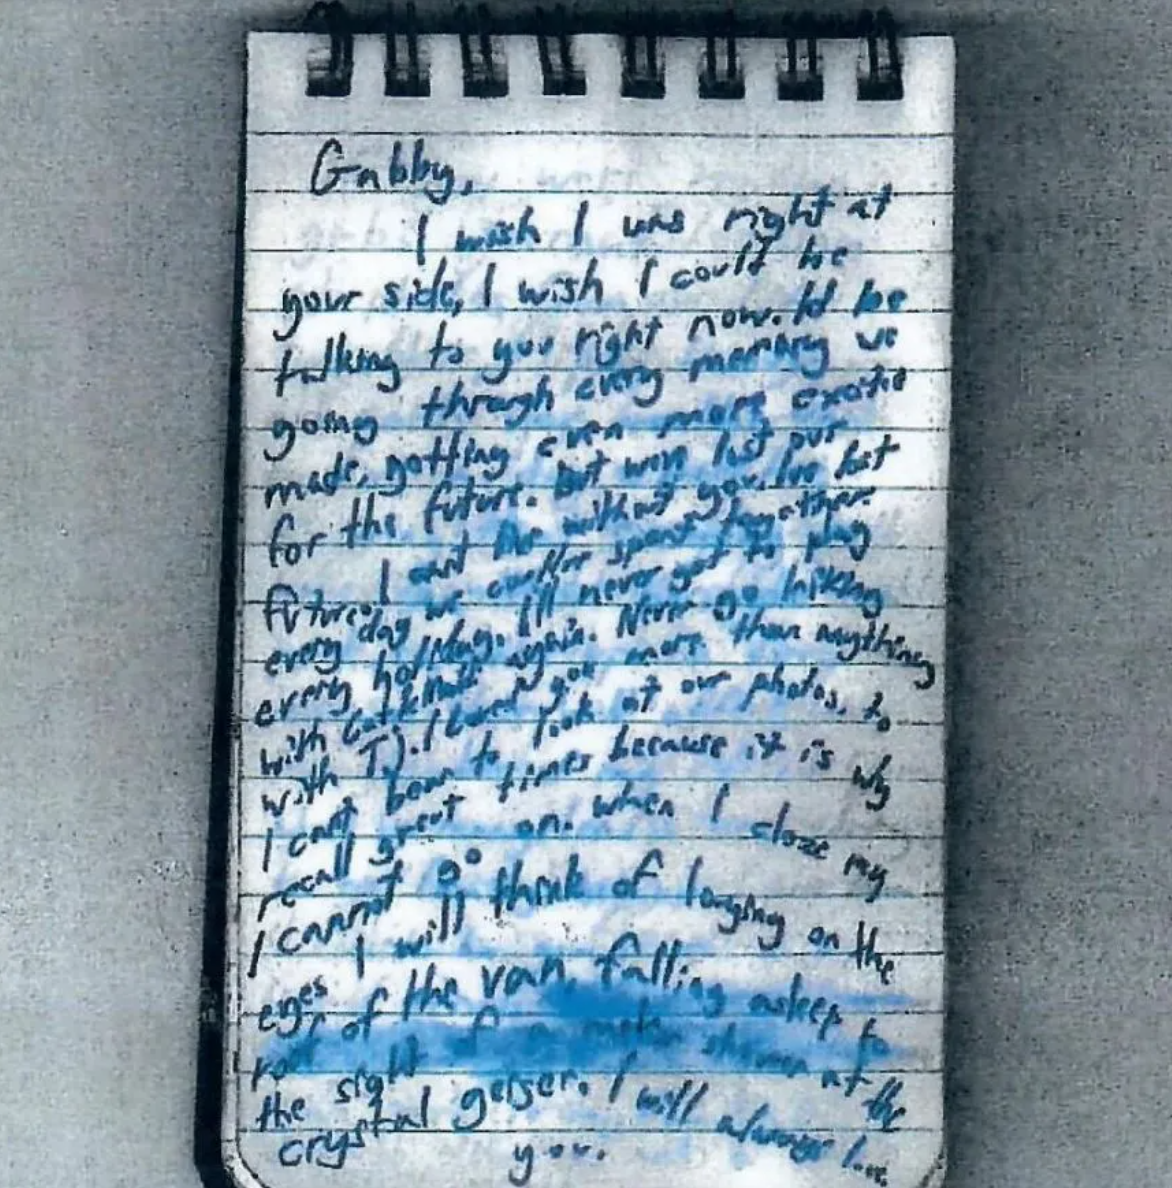 Gabby,
I wish I was right at
your side, I wish I could be
talking to you right now. Id be
going through every memory we
made, getting even more excited
for the future. but we've lost our
future. I can't live without you. I've lost
every day we could've spent together.
every holiday. I'll never get to play
with again. Never go hiking
with TJ. I loved you more than anything
I can't bear to look at our photos, to
recall great times because it is why
I cannot go on. when I close my
eyes I will think of laughing on the
roof of the van, falling asleep to
the sight of at the
crystal geiser. I will always love
you.